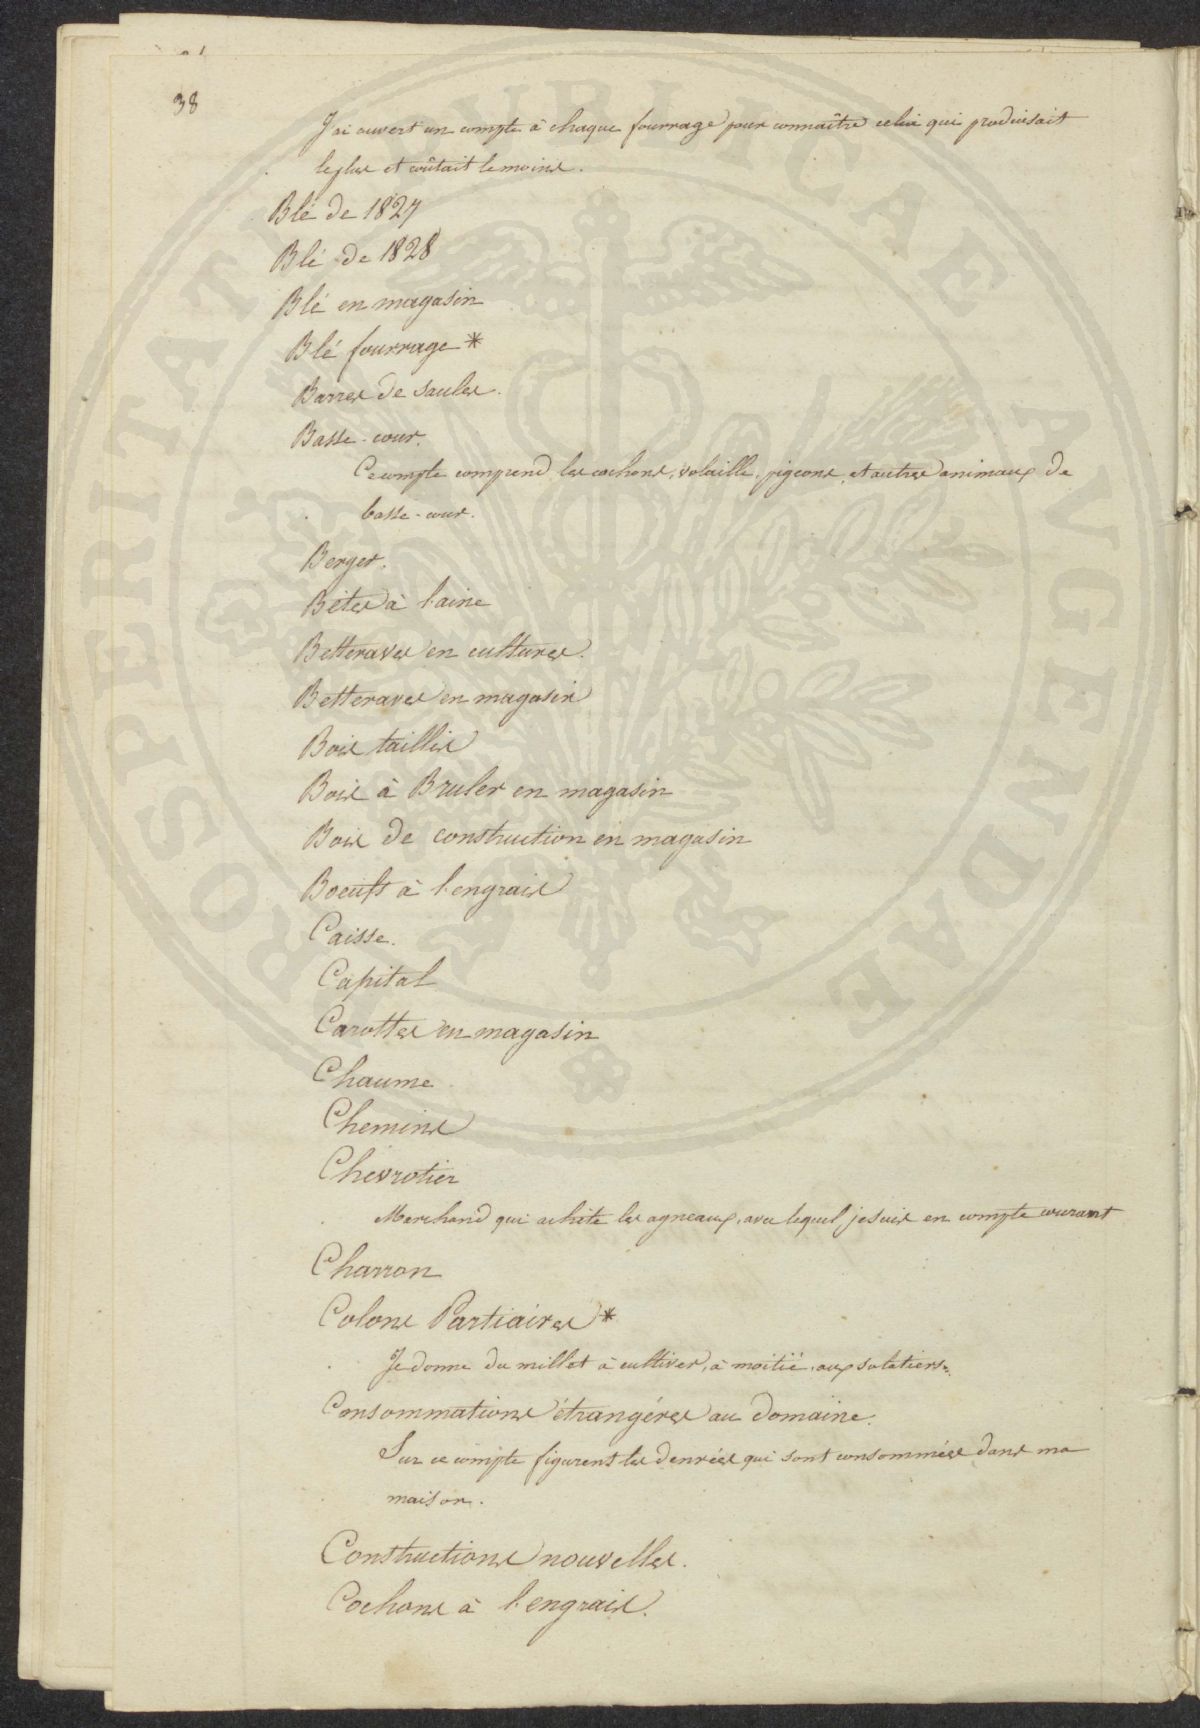 38
J'ai ouvert un compte à chaque fourrage pour connaître celui qui produisait
le plus et coûtait le moins.
Blé de 1827
Blé de 1828
Blé en magasin
Blé fourrage *
Barres de saules.
Basse-cour.
Ce compte comprend les cochons, volaille, pigeons, et autres animaux de
basse-cour.
Berger.
Bêtes à laine
Betteraves en cultures.
Betteraves en magasin
Bois taillis
Bois à Bruler en magasin
Bois de construction en magasin
Boeufs à l'engrais
Caisse.
Capital
Carottes en magasin
Chaume
Chemins
Chevrotier
Marchand qui achète les agneaux, avec lequel je suis en compte courant
Charron
Colons Partiaires *
Je donne du millet à cultiver, à moitié, aux solatiers.
Consommations étrangéres au domaine.
Sur ce compte figurent les denrées qui sont consommées dans ma
maison.
Constructions nouvelles.
Cochons à l'engrais.
PROSPERITATI PUBLICAE AVGENDAE